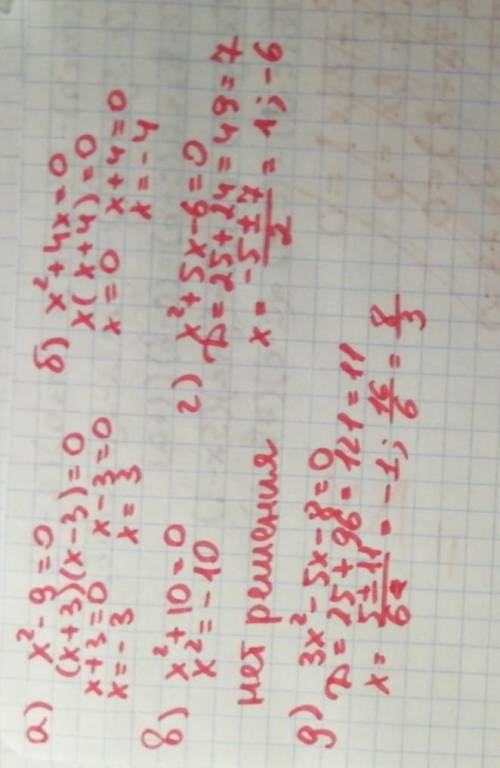 а) x² - 9 = 0
(x+3)(x-3)=0
x+3=0 x-3=0
x=-3 x=3
б) x² + 4x = 0
x(x+4)=0
x=0 x+4=0
x=-4
в) x² + 10 = 0
x² = -10
нет решения
г) x² + 5x - 6 = 0
D = 25 + 24 = 49 = 7
x = -5 ± 7 / 2 = 1; -6
д) 3x² - 5x - 8 = 0
D = 25 + 96 = 121 = 11
x = 5 ± 11 / 6 = -1; 16/6 = 8/3